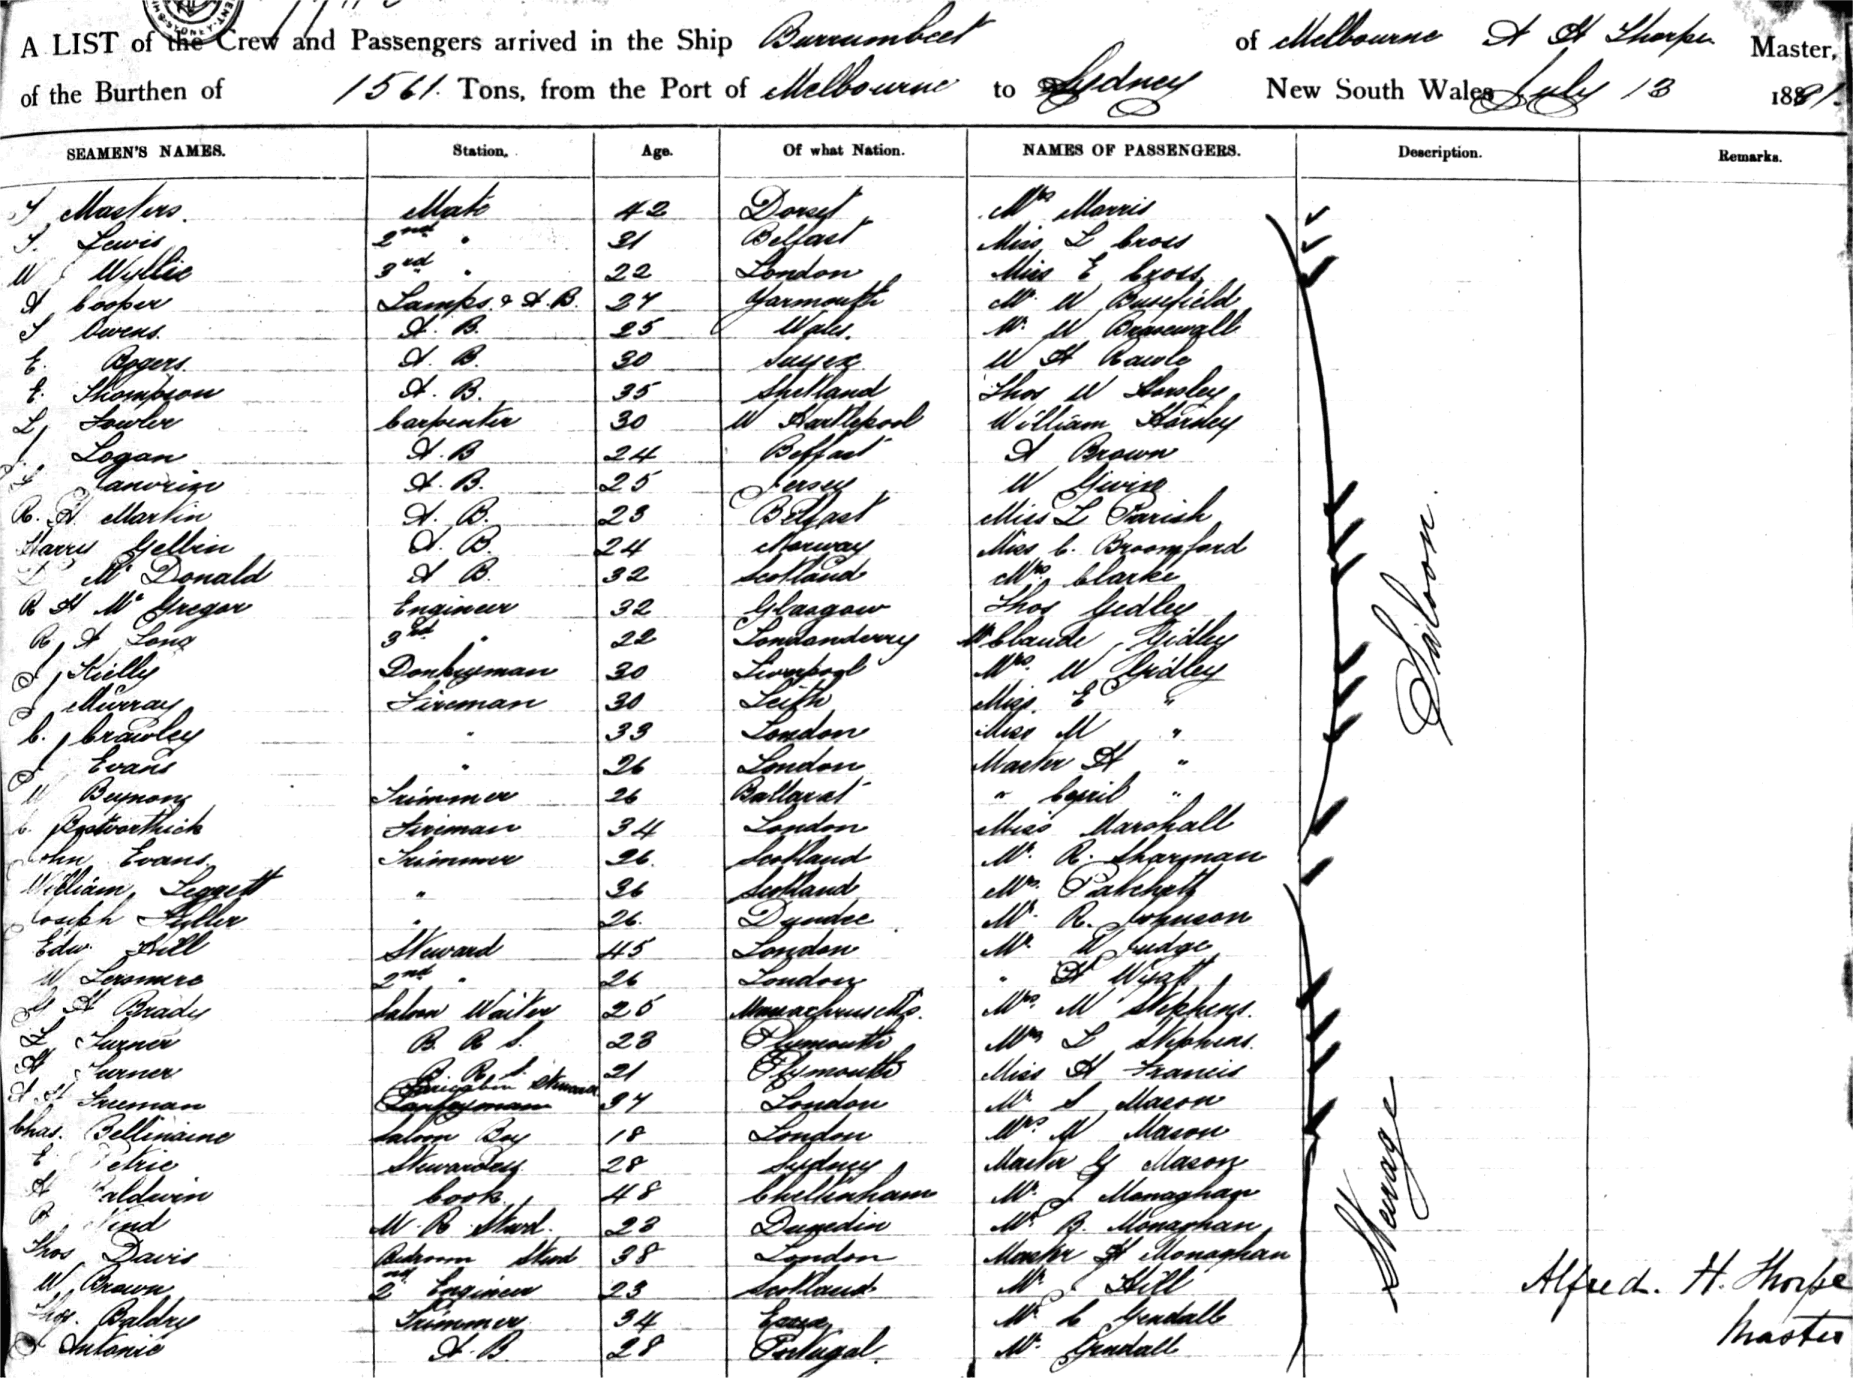 A LIST of the Crew and Passengers arrived in the Ship Burrumbeet of Melbourne A H Thorpe Master,
of the Burthen of 1561 Tons, from the Port of Melbourne to Sydney New South Wales July 13 1881.
SEAMEN'S NAMES. Station, Age. Of what Nation. NAMES OF PASSENGERS. Description. Remarks.
Masters. Mate 42 Dorset Mrs Marris
Lewis 2nd " 21 Belfast Miss L Cross
W Wyllie 3rd " 22 London Miss E Cross
A Cooper Lamps & A.B. 27 Yarmouth Mr W
Owens A. B. 25 Wales. Mr W
E. Rogers A. B. 30 Sussex W H Rawle
E. Thompson A. B. 35 Shetland Thos W Horsley
L Fowler Carpenter 30 W Hartlepool William Horsley
J. Logan A. B 24 Belfast A Brown
A. B. 25 Jersey W
R. H Martin A. B. 23 Belfast Miss L Parish
Harry Gellin A. B. 24 Norway Miss C. Broomford
Mc Donald A B. 32 Scotland Mrs Clarke
R H Mc Gregor Engineer 32 Glasgow Thos Gidley
R A Long 3rd " 22 Londonderry Claude Gidley
J Kielly Donkeyman 30 Liverpool Mrs W Gidley
J Murray Fireman 30 Leith Miss. E "
C. Crawley " 33 London Miss M "
J Evans " 26 London Master H "
W Beynon Trimmer 26 Ballarat " Cyril "
Fireman 34 London Miss Marshall
John Evans. Trimmer 26. Scotland Mr R. Sharman
William Leggett " 36 Scotland
Joseph " 26. Dundee Mr R. Johnson
Edw. Hill Steward 45 London Mr W Judge
W 2nd " 26 London " H Wyatt
H Brady Saloon Waiter 25 Massachusetts. Mrs M Stephens.
Turner B. R S. 23 Plymouth L Stephens.
H Turner B. R. S. 21 Plymouth Miss H Francis
Freeman 37 London Mr S Mason
Chas. Bellinaine Saloon Boy 18 London Mrs M Mason
E Petrie Stewardess 28 Sydney Master G Mason
A Baldwin Cook 48 Cheltenham Mr J Monaghan
M. R. Stwd. 23 Dunedin B. Monaghan
Thos Davis Bedroom Stwd 38 London Master H Monaghan
W Brown 2nd Engineer 23 Scotland Mr Hill
Baldry Trimmer 34 Essex Mr C Gendall
Antonie A. B. 28 Portugal. Mr Gendall
Saloon.
Steerage
Alfred. H. Thorpe
Master